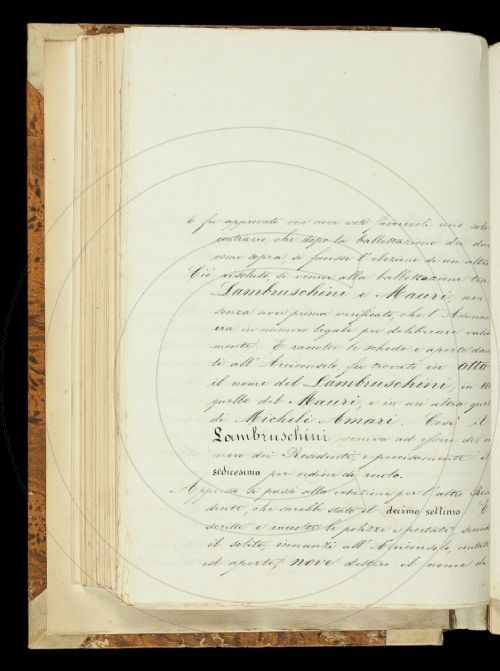 E fu approvato con nove voti favorevoli uno solo
contrario che dopo la ballottazione dei due
come sopra si facesse l'elezione di un altro
Ciò resoluto, si venne alla ballottazione tra
Lambruschini e Mauri, non
senza aver prima verificato, che l'Adunan
era in numero legale per deliberare valida
mente. E raccolte le schede e aperte dava
ti all'Arciconsolo, fu trovato in otto
il nome del Lambruschini, in
quello del Mauri, e in un'altra quel
di Michele Amari. Così il
Lambruschini veniva ad essere del
mero dei Residenti, e precisamente il
sedicesimo per ordine di ruolo.
Appresso si passò alla votazione per l'altro Resi
dente, che sarebbe stato il decimo settimo. E
scritte e raccolte le polizze e portate, secondo
il solito, innanzi all'Arciconsolo, contate
ed aperte, nove dettero il nome di